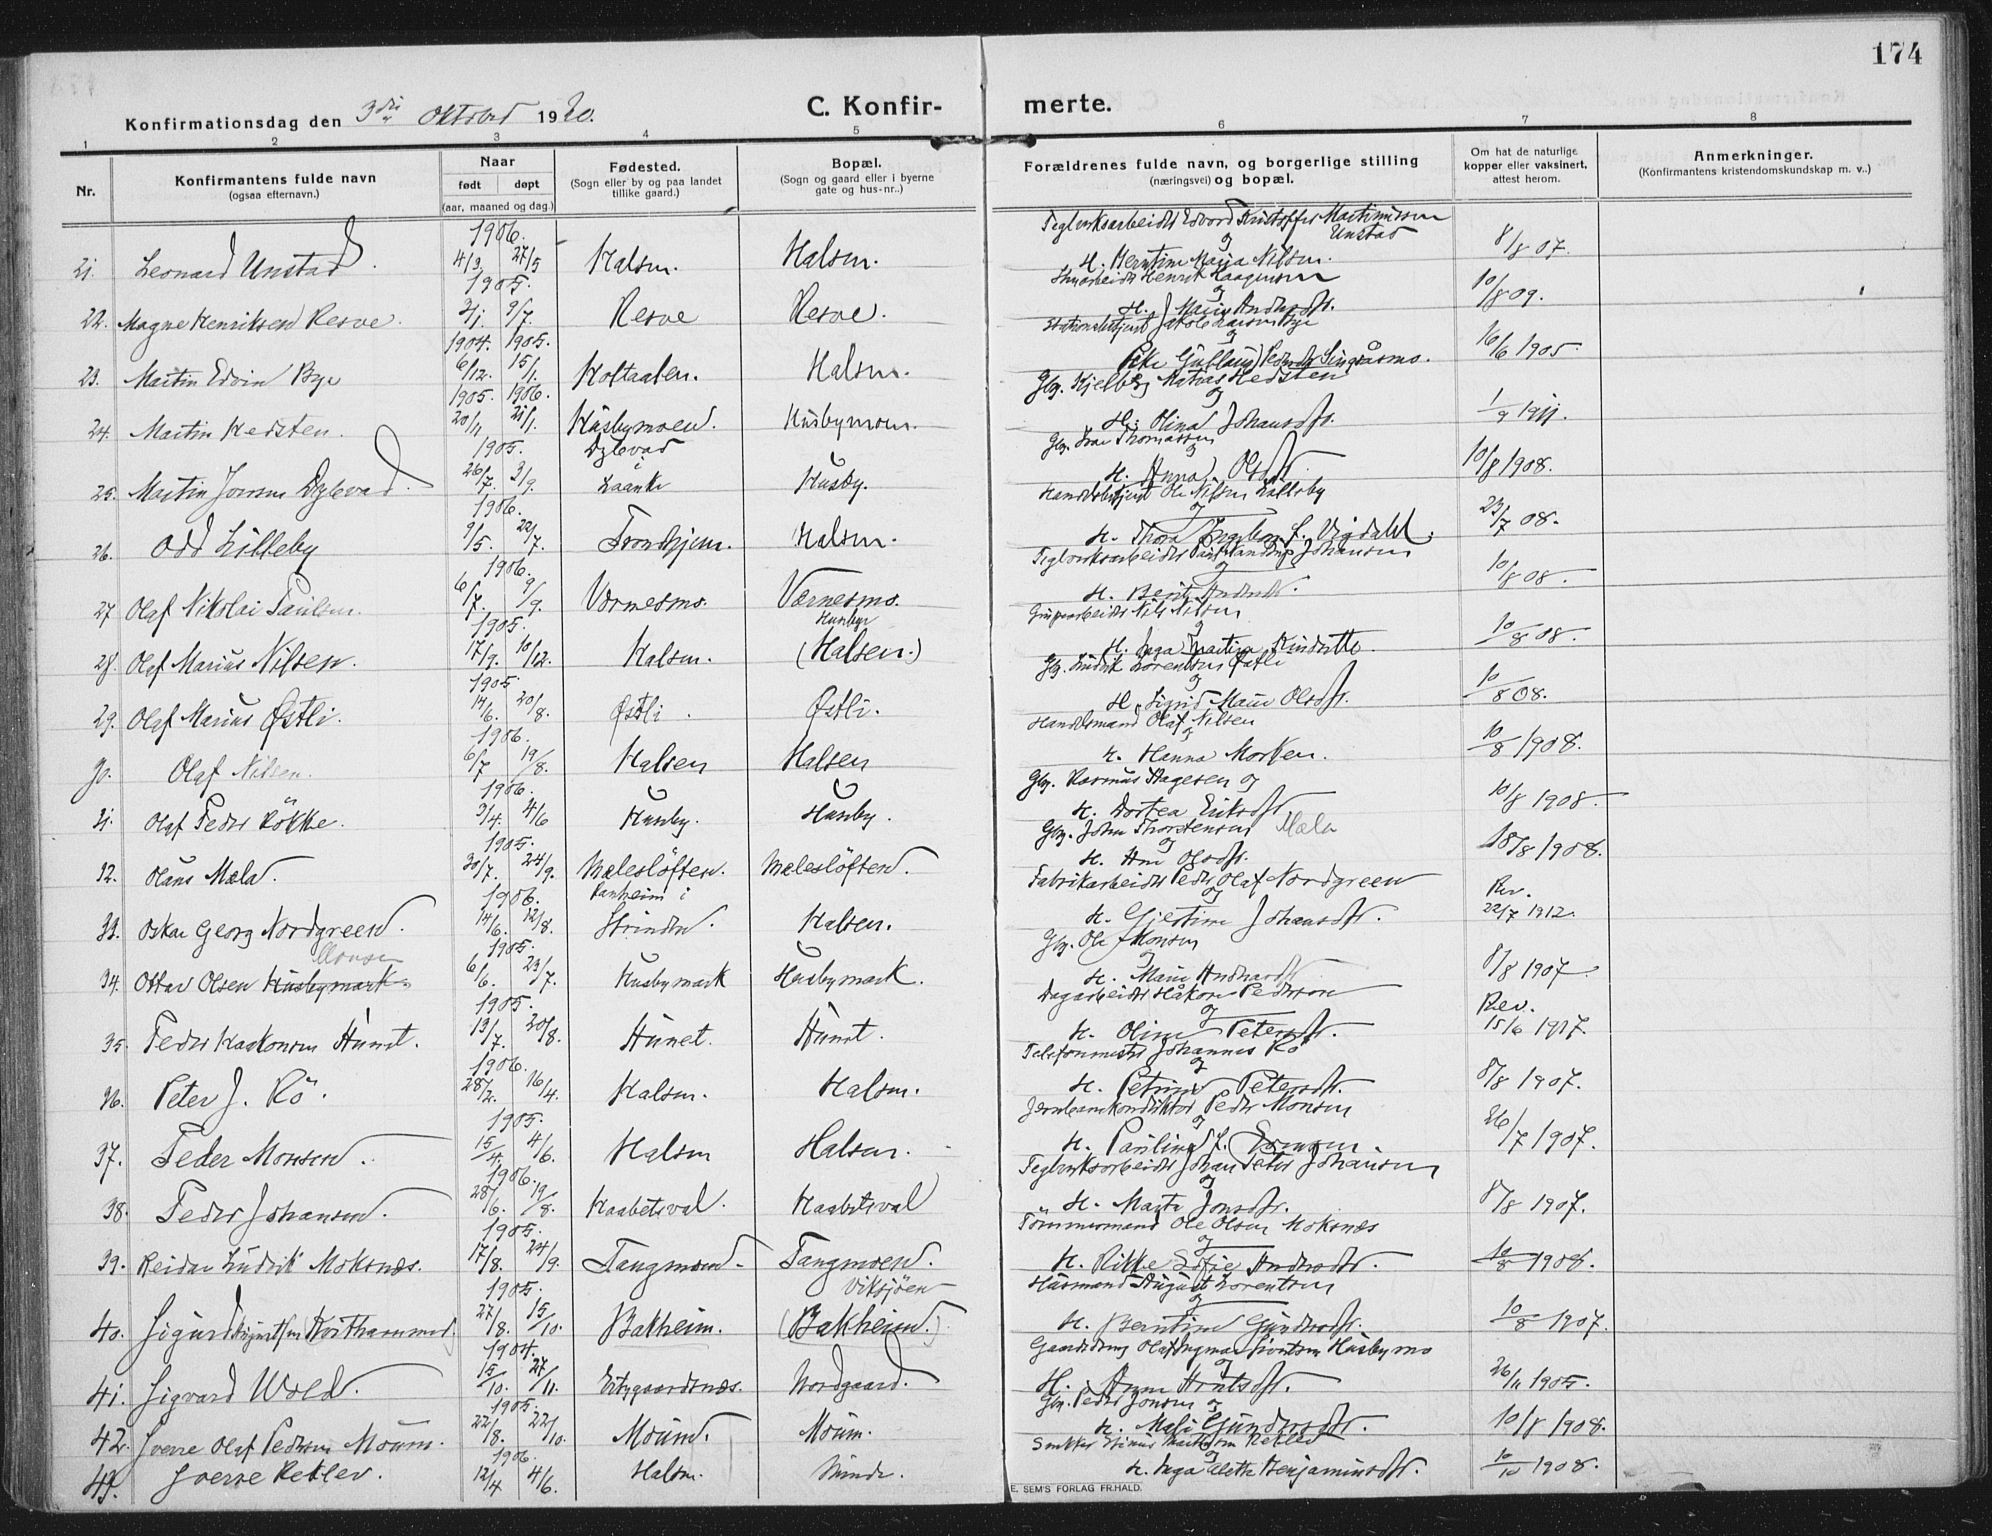 174
Konfirmationsdag den 3die Oktober 1920.
C. Konfir- merte.
1 2 3 4 5 6 7 8
Nr.
Konfirmantens fulde navn
(ogsaa efternavn.)
Naar
født døpt
(aar, maaned og dag.)
Fødested.
(Sogn eller by og paa landet
tillike gaard.)
Bopæl.
(Sogn og gaard eller i byerne
gate og hus-nr..)
Forældrenes fulde navn, og borgerlige stilling
(næringsvei) og bopæl.
Om hat de naturlige
kopper eller vaksinert,
attest herom.
Anmerkninger.
(Konfirmantens kristendomskundskap m. v..)
1906. Teglverksarbeider Edvard Kristoffer Martinussen
og Unstad
21. Leonard Unstad. 4/3. 27/5 Halsen. Halsen. H. Berntine Maria Nilsen. 8/8 07.
1905. Henrik Haagensen
og
22. Magne Henriksen Resve. 2/1. 9/7. Resve Resve. H. Marie Andersdtr. 10/8 09.
1904. 1905. Stationsbetjent Jakob Larsen Bye
og
23. Martin Edvin Bye 6/12. 15/1. Holtaalen. Halsen. Pike Gullaug Pedersdtr Singsåsmo. 16/6 1905.
1905. 1906. Gbr. Kjelberg Matias Hedsten
og
24. Martin Hedsten. 20/11 21/1. Husbymoen. Husbymoen. H. Olina Johansdtr. 1/9 1911.
1905. Dylevad Gbr. Ivar Thomassen
og
25. Martin Joersen Dylevad. 26/7. 3/9. Laanke Husby. H. Anna Olsdtr. 10/8 1908.
1906. Handelsbetjent Ole Nilsen Lilleby
og
26. Odd Lilleby 9/5. 22/7. Trondhjem. Halsen. H. Thora Ingeborg L. Vigdahl. 23/7 08.
1906. Teglverksarbeider Paul Johansen
og
27 Olaf Nikolai Paulsen. 6/7. 9/9. Værnesmo. Værnesmo. H. Berit Andersdtr. 10/8 08.
1905. Husbye Nils Nilsen
og
28. Olaf Marius Nilsen. 17/9. 10/12. Halsen. (Halsen.) H. Inga Martina Kindsette. 10/8 08.
1905 Gbr. Ludvik Lorentsen Østli
og
29. Olaf Marius Østli. 14/6. 20/8. Østli. Østli. H. Sigrid Marie Olsdtr. 10/8 08.
1906. Handelsmand Olaf Nilsen
og
30. Olaf Nilsen. 6/7 19/8. Halsen Halsen H. Hanna Morken. 10/8 1908.
1906. Gbr. Rasmus Hagesen og
31. Olaf Peder Røkke. 3/4. 4/6 Husby. Husby. H. Dortea Eriksdtr. 10/8 1908.
1905. Gbr. John Thorstensen Mæla
og
32. Olaus Mæla. 30/7. 24/9. Mælesløften. Mælesløften. H. Ane Olsdtr. 18/8 1908.
1906. Ranheim i Fabrikarbeider Peder Olaf Nordgreen
og Rev.
33. Oskar Georg Nordgreen. 14/6. 12/8. Strinden. Halsen. H. Gjertine Johansdtr. 22/7 1912.
Monsen 1905. Gbr. Ole Monsen
og
34. Ottar Olsen Husbymark. 6/6. 23/7. Husbymark Husbymark. H. Marie Andersdtr. 8/8 1907
1905. Dagarbeider Håkon Pedersen
og Rev.
35. Peder Haakonsen Hunet. 13/7. 20/8. Hunet. Hunet. H. Oline Petersdtr. 15/6 1917.
1906. Telefonmester Johannes Rø
og
36. Peter J. Rø. 28/2. 16/4. Halsen. Halsen. H. Petrine Petersdtr. 8/8 1907.
1905. Jernbanekonduktør Peder Monsen
og
37. Peder Monsen. 15/4. 4/6. Halsen Halsen. H. Pauline 26/7 1907.
1906. Teglverksarbeider Johan Peter Johansen
og
38. Peder Johansen. 28/6. 19/8. Kaabetsval. Kaabetsval H. Marta Jonsdtr. 8/8 1907.
1905. Tømmermand Ole Olsen Moksnæs
og
39. Reidar Ludvik Moksnæs. 17/8. 24/9. Tangmoen. Tangmoen. H. Rikke Sofie Andersdtr. 10/8 1908.
1905. Viksjøen Husmand August Lorentsen
og
40. Sigurd Augustsen (Korthammer) 27/8. 15/10. Bakheim. (Bakheim.) H. Berntine Gundersdtr. 10/8 1907.
1904. Gaardsdreng Olaf Ingmar Sivertsen Husbymo
og
41. Sigvard Wold. 15/10. 27/11. Nordgaard. H. Anne 26/11 1905.
1905. Gbr. Peder Jonsen og
42. Sverre Olaf Pedersen Mourn. 22/8. 22/10. Mourn. Mourn. H. Mali Gundersdtr. 10/8 1908.
1906. Snekker
og
43. Sverre Reklev. 12/4 4/6. Halsen. Minde. H. Inga Aletta Benjaminsdtr. 10/10 1908.
E. SEM'S FORLAG FR.HALD.